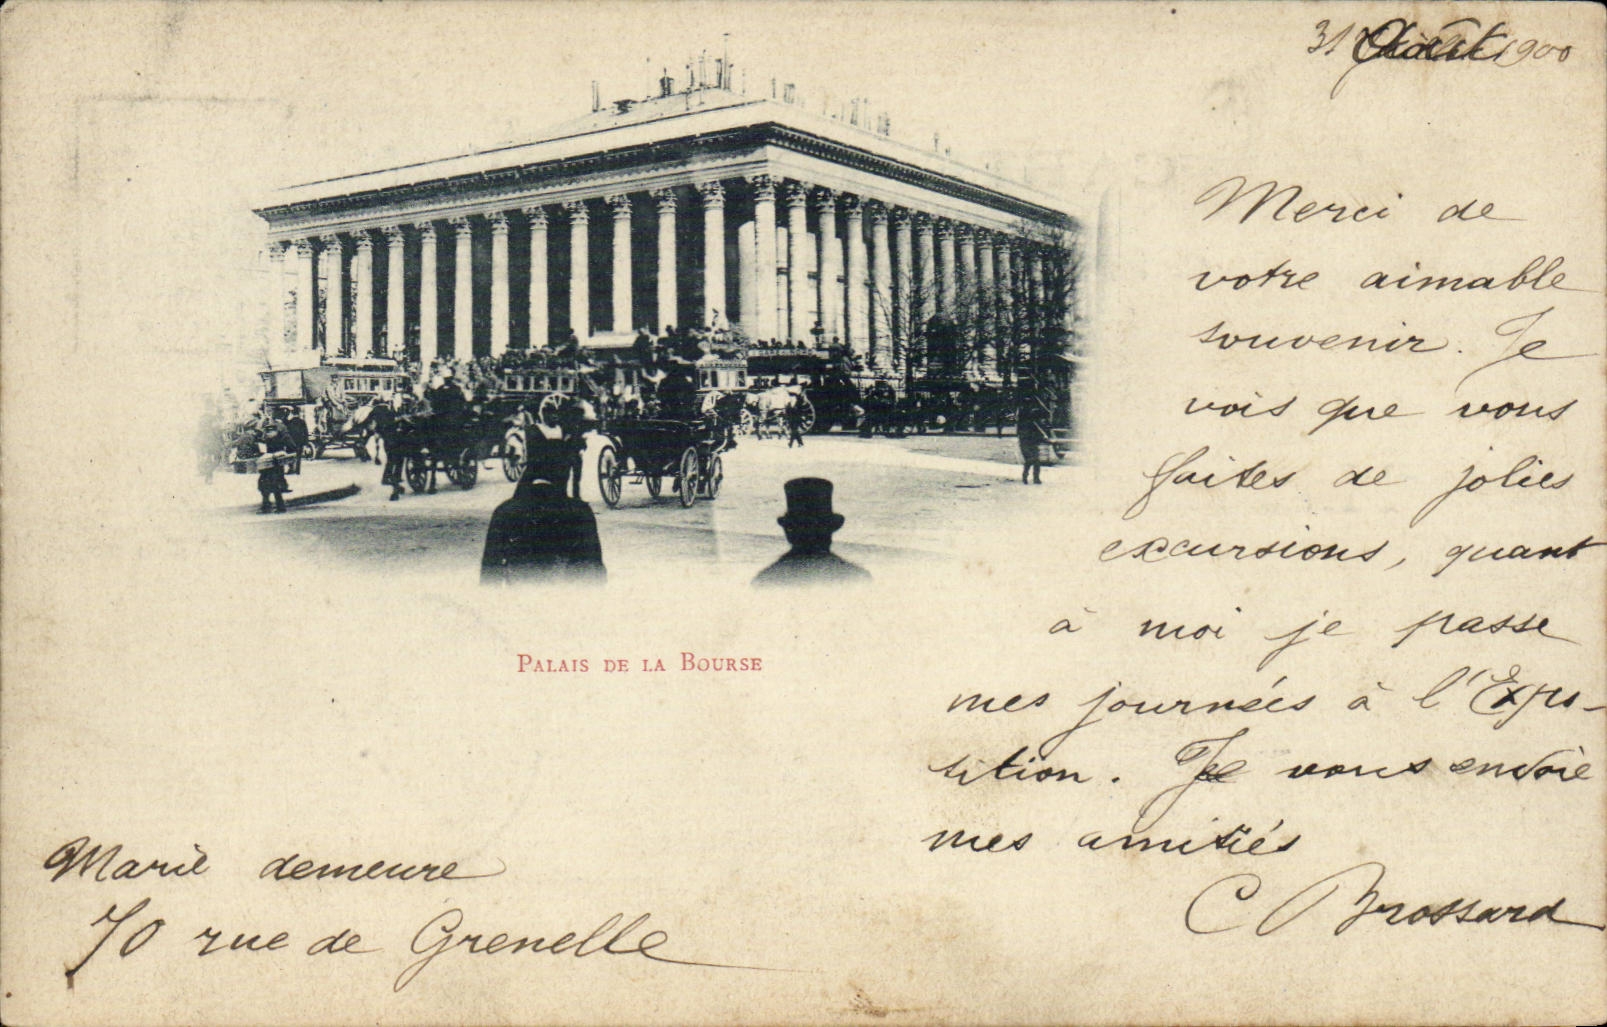 31 Août 1900
Merci de
votre aimable
souvenir. Je
vois que vous
faites de jolies
excursions, quant
à moi je passe
mes journées à l'Expo-
sition. Je vous envoie
mes amitiés
C Brossard
PALAIS DE LA BOURSE
Marie demeure
70 rue de Grenelle